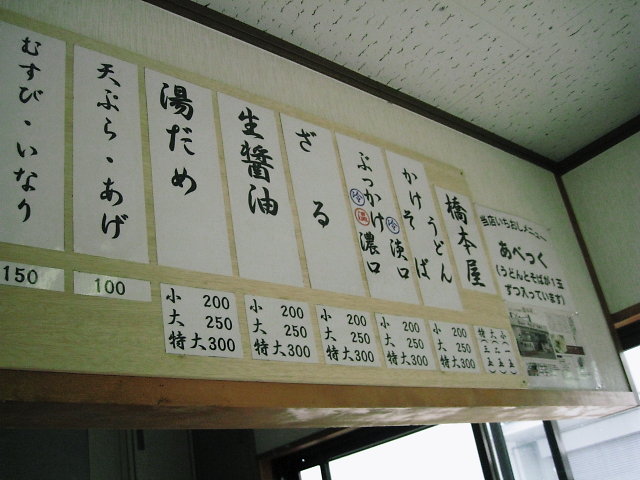 当店いちおしメニュー
あべっく
(うどんとそばが1玉
ずつ入っています)
橋本屋
かけ うどん
そば
ぶっかけ 冷 淡口
温 濃口
ざる
生醤油
湯だめ
天ぷら・あげ
むすび・いなり
150
100
小 200
大 250
特大300
小 200
大 250
特大300
小 200
大 250
特大300
小 200
大 250
特大300
小 200
大 250
特大300